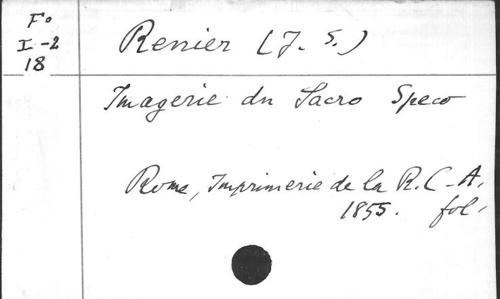 F°
I-2
18
Renier (J. S.)
Imagerie du Sacro Speco
Rome, Imprimerie de la R. C-A.
1855. fol.